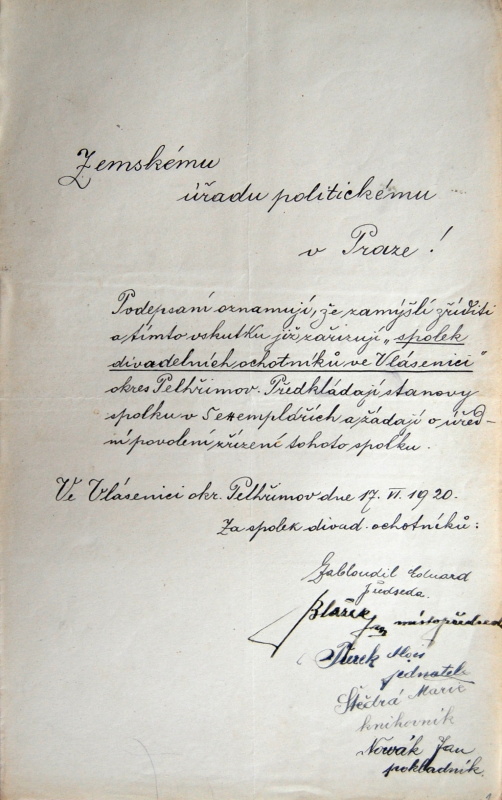 Zemskému
úřadu politickému
v Praze!
Podepsaní oznamují, že zamýšlí zříditi
a tímto vskutku již zařizují „spolek
divadelních ochotníků ve Vlásenici"
okres Pelhřimov. Předkládají stanovy
spolku v 5 exemplářích a žádají o úřed-
ní povolení zřízení tohoto spolku.
Ve Vlásenici okr. Pelhřimov dne 17. VI. 1920.
Za spolek divad. ochotníků:
Zabloudil Eduard
předseda.
Blažek Jan místopředsed
Alois
jednatel
Štědrá Marie
knihovník
Novák Jan
pokladník.